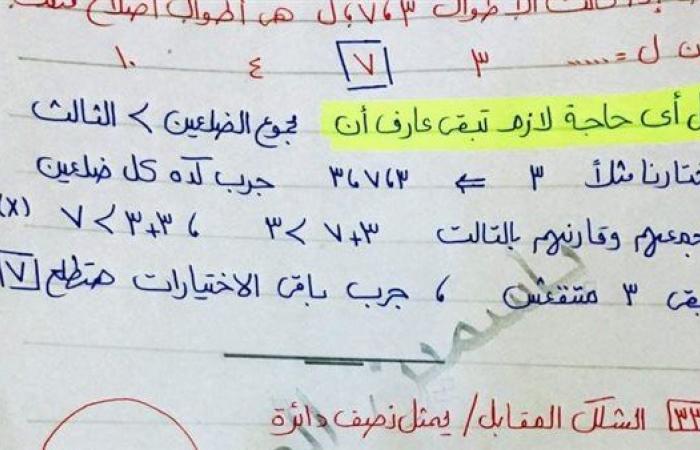 كانت الأطوال ٣ ، ٧ ، ل هى أطوال أضلاع مثلث
ن ل = ...... ٣ ٧ ٤ ١٠
أى حاجة لازم تبقى عارف أن مجموع الضلعين > الثالث
ختارنا مثلاً ٣ ⇐ ٣ ، ٧ ، ٣ جرب كده كل ضلعين
جمعهم وقارنهم بالتالت ٣ + ٧ > ٣ ، ٣ + ٣ > ٧ (X)
يبقى ٣ متنفعش ، جرب باقى الاختيارات هتطلع ٧
ياسمين
٣٣ الشكل المقابل / يمثل نصف دائرة